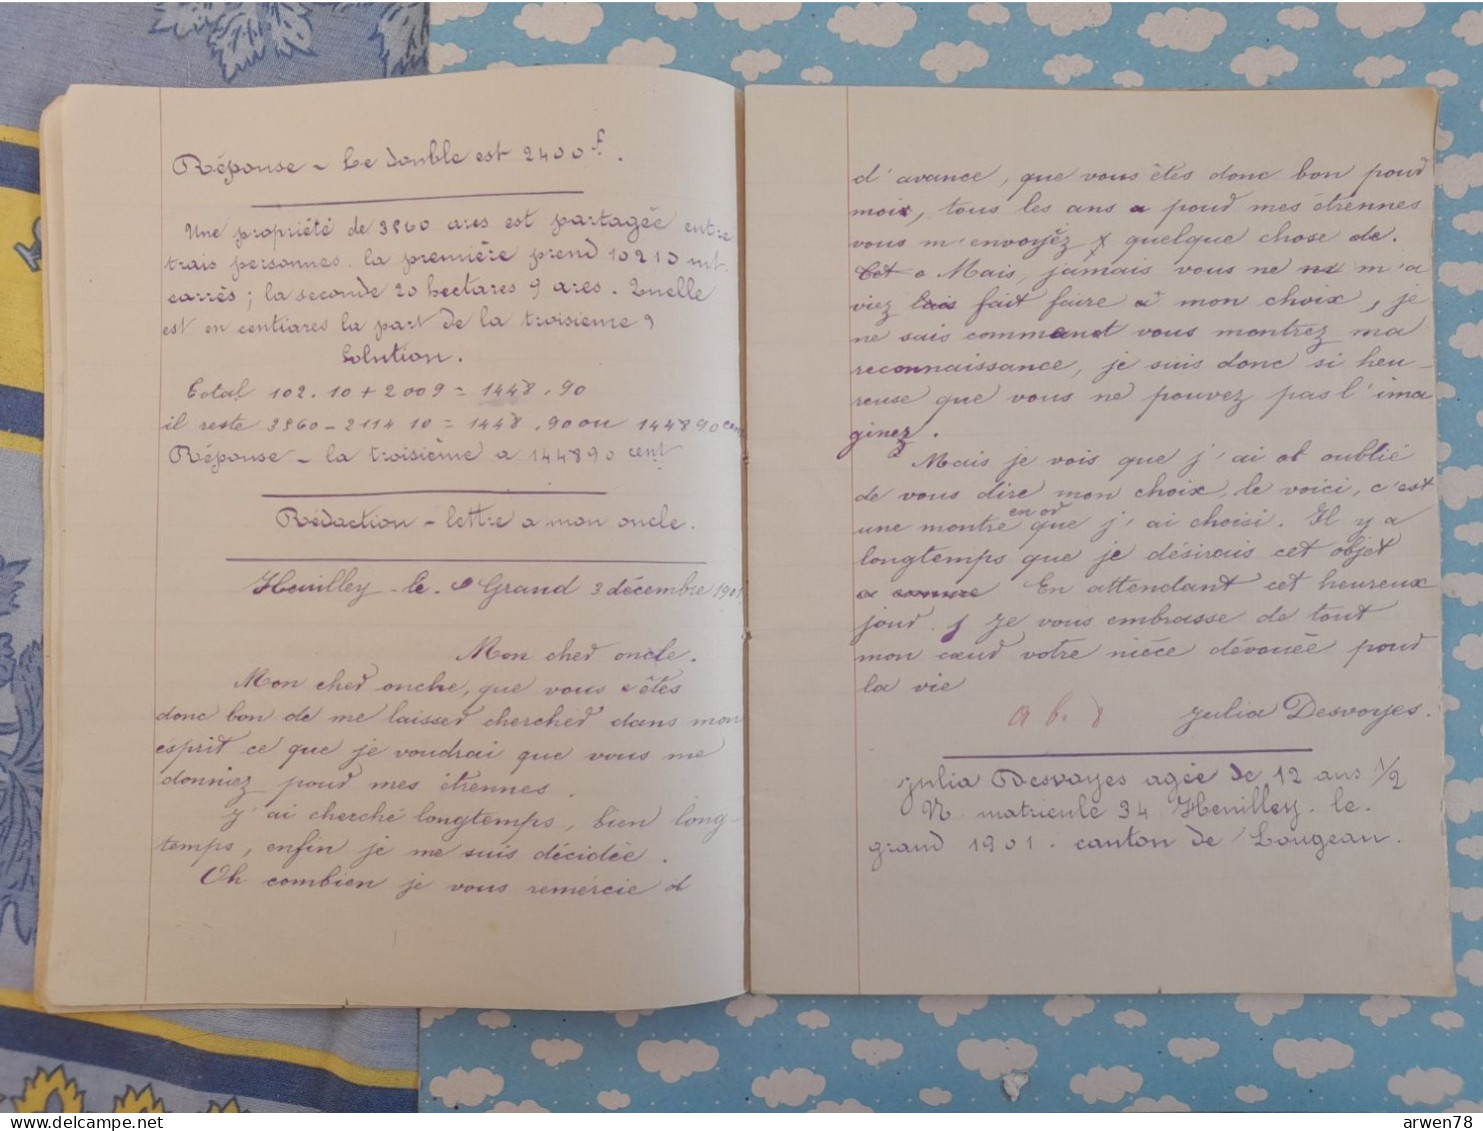 Réponse - Le double est 2400 f.
Une propriété de 3560 ares est partagée entre
trois personnes. la première prend 10210 mt.
carrés ; la seconde 20 hectares 9 ares. Quelle
est en centiares la part de la troisieme ?
Solution.
Total 102.10 + 2009 = 1448.90
il reste 3560 - 2111 10 = 1448.90 ou 144890 cen
Réponse - la troisième a 144890 cent
Rédaction - lettre a mon oncle.
Heuilley - le - Grand 3 décembre 1901
Mon cher oncle.
Mon cher oncle, que vous êtes
donc bon de me laisser chercher dans mon
esprit ce que je voudrai que vous me
donniez pour mes étrennes.
J'ai cherché longtemps, bien long-
temps, enfin je me suis décidée.
Oh combien je vous remércie d
d'avance, que vous êtes donc bon pour
moi, tous les ans a pour mes étrennes
vous m'envoyéz quelque chose de.
Cet Mais, jamais vous ne m'a
viez fait faire a mon choix, je
ne sais command vous montrez ma
reconnaissance, je suis donc si heu-
reuse que vous ne pouvez pas l'ima
ginez.
Mais je vois que j'ai oublié
de vous dire mon choix, le voici, c'est
une montre en or que j'ai choisi. Il y a
longtemps que je désirais cet objet
En attendant cet heureux
jour. je vous embrasse de tout
mon cœur votre niéce dévouée pour
la vie
a b. 8 Julia Desvoyes.
Julia Desvoyes agée de 12 ans 1/2
N. matricule 34 Heuilley. le.
grand 1901. canton de Longeau.
arwen78